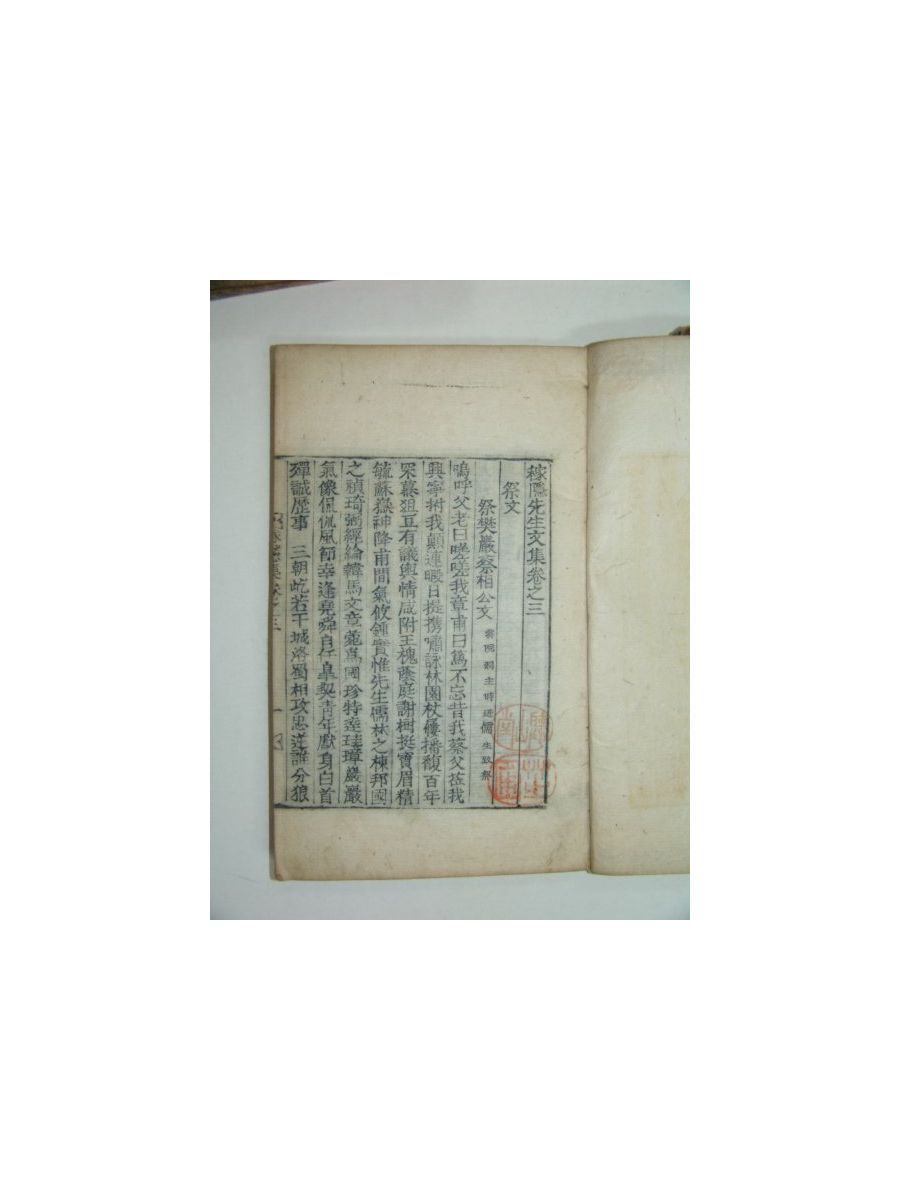 稼隱先生文集卷之三
祭文
祭樊巖蔡相公文 院 主時 儒生致祭
嗚呼父老曰嗟嗟我章甫曰篤不忘昔我蔡父莅我
興寧拊我顚連暇日提携嘯詠林園杖屨播馥百年
采慕俎豆有議輿情咸附王槐蔭庭謝柯挺寶眉精
毓蘇嶽神降甫間氣攸鍾實惟先生儒林之棟邦國
之禎琦弼經綸韓馬文章蔚爲國珍特達珪璋巖巖
氣像侃侃風節幸逢堯舜自任臯契靑年獻身白首
殫誠歷事 三朝屹若干城洛蜀相攻忠逆誰分狼